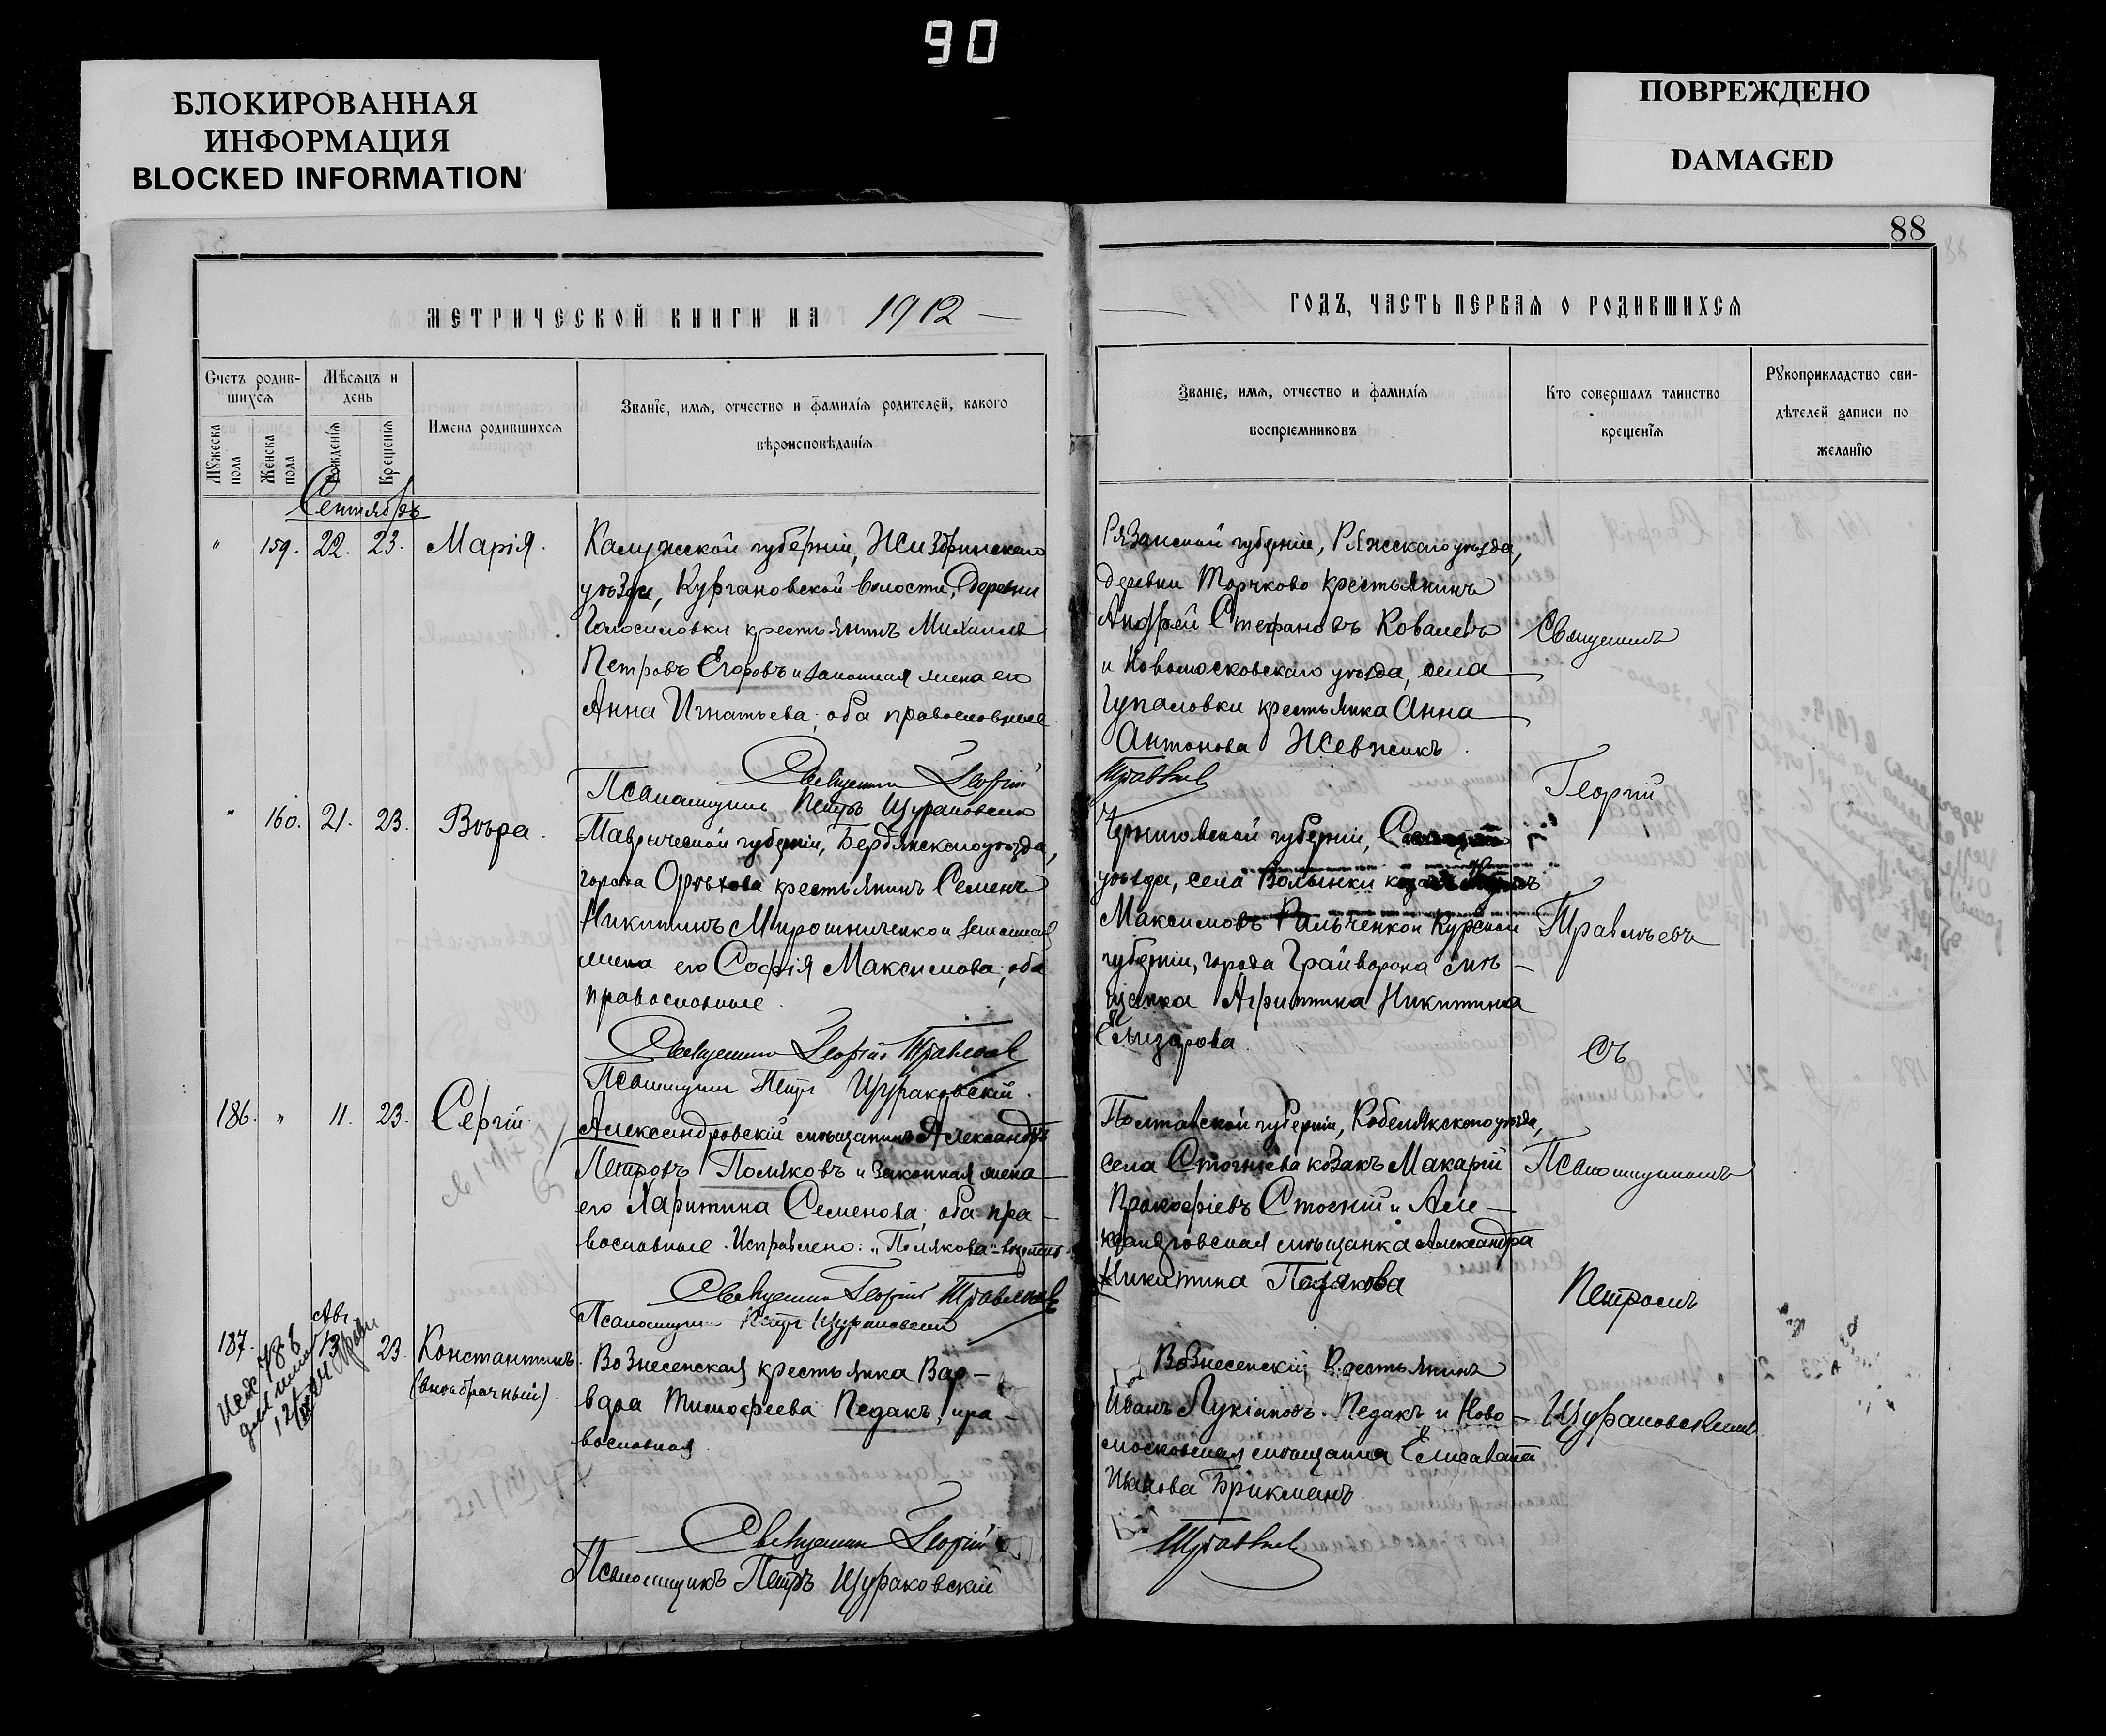 90
БЛОКИРОВАННАЯ
ИНФОРМАЦИЯ
BLOCKED INFORMATION
ПОВРЕЖДЕНО
DAMAGED
88
МЕТРИЧЕСКОЙ КНИГИ НА 1912
Счетъ родив-
шихся
Мѣсяцъ и
день
Мужеска
пола
Женска
пола
Рожденія
Крещенія
Имена родившихся
Званіе, имя, отчество и фамилія родителей, какого
вѣроисповѣданія
Сентябрь
" 159. 22. 23. Марія.
Калужской губерніи, Жиздринскаго
уѣзда, Кургановской волости, деревни
Голосиловки крестьянинъ Михаилъ
Петровъ Егоровъ и законная жена его
Анна Игнатьева; оба православные.
Священникъ Георгій
Псаломщикъ Петръ Щураковскій
" 160. 21. 23. Вѣра.
Таврической губерніи, Бердянскаго уѣзда,
города Орѣхова крестьянинъ Семенъ
Никитинъ Мирошниченко и законная
жена его Софія Максимова; оба
православные.
Священникъ Георгій Травлѣевъ
Псаломщикъ Петръ Щураковскій.
186. " 11. 23. Сергій.
Александровскій мѣщанинъ Александръ
Петровъ Поляковъ и законная жена
его Харитина Семенова; оба пра-
вославные. Исправлено: "Полякова"
Священникъ Георгій Травлѣевъ
Псаломщикъ Петръ Щураковскій
187. Авг. 13 23. Константинъ
(внѣбрачный).
Вознесенская крестьянка Вар-
вара Тимофеева Педакъ, пра-
вославная.
Священникъ Георгій
Псаломщикъ Петръ Щураковскій
ГОДЪ, ЧАСТЬ ПЕРВАЯ О РОДИВШИХСЯ
Званіе, имя, отчество и фамилія
воспріемниковъ
Кто совершалъ таинство
крещенія
Рукоприкладство сви-
дѣтелей записи по
желанію
Рязанской губерніи, Ряжскаго уѣзда,
деревни Торчково крестьянинъ
Андрей Стефановъ Ковалевъ
и Новомосковскаго уѣзда, села
Гупаловки крестьянка Анна
Антонова Жевжикъ.
Травлѣевъ
Черниговской губерніи,
уѣзда, села Волынки
Максимовъ Ральченко и Курской
губерніи, города Грайворона мѣ-
щанка Агриппина Никитина
Елизарова.
Полтавской губерніи, Кобелякскаго уѣзда,
села козакъ Макарій
Прокофіевъ Стогній и Але-
ксандровская мѣщанка Александра
Никитина Полякова
Вознесенскій крестьянинъ
Иванъ Лукіановъ Педакъ и Ново-
московская мѣщанка Елисавета
Иванова Брикманъ.
Травлѣевъ
Священникъ
Георгій
Травлѣевъ
съ
Псаломщикомъ
Петромъ
Щураковскимъ